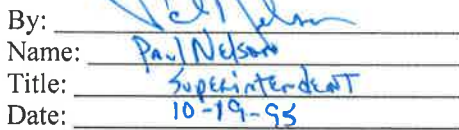 By: Paul Nelson
Name: Paul Nelson
Title: Superintendent
Date: 10-19-95